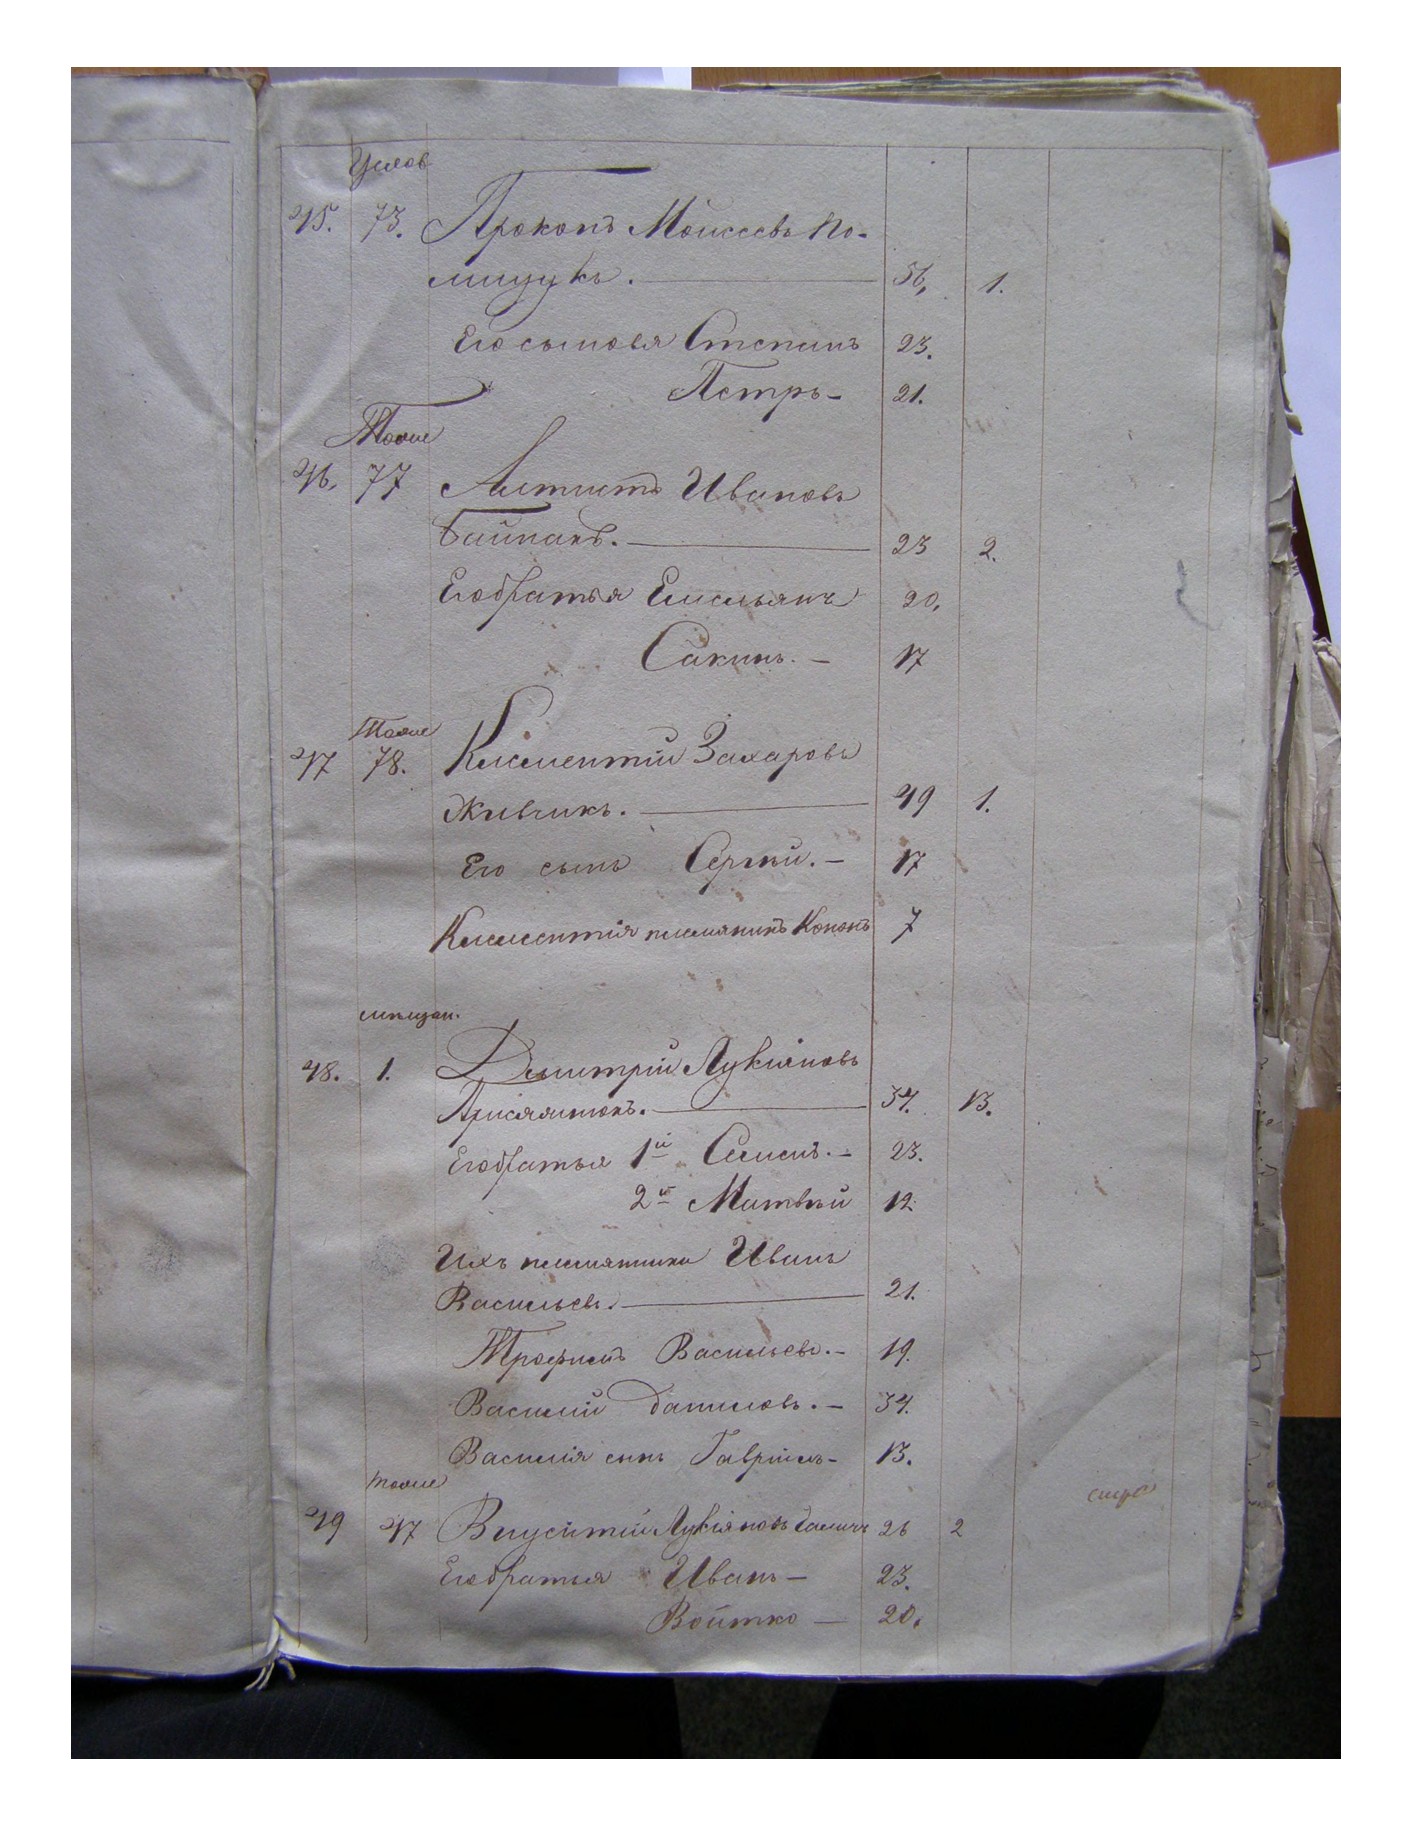 45. 73. Прокопъ Моисеевъ По-
лищукъ. 56, 1.
Его сыновья Степанъ 23.
Петръ 21.
Тоже
46. 77 Ивановъ
23 2.
Его братья Емельянъ 20,
17
Тоже
47 78. Климентий Захаровъ
Живчикъ. 49 1.
Его сынъ Сергѣй. 17
Климентия племяникъ Кононъ 7
мещан.
48. 1. Дмитрій Лукіяновъ
34. 13.
Его братья 1й Семенъ. 23.
2й Матвѣй 12
Ихъ племянники Иванъ
Васильевъ. 21.
Трофимъ Васильевъ. 19.
Василий Даниловъ. 34.
Василія сынъ Гавріилъ 13.
тоже
49 47 Лукіяновъ 26 2
Его братья Иванъ 23.
Войтко 20.